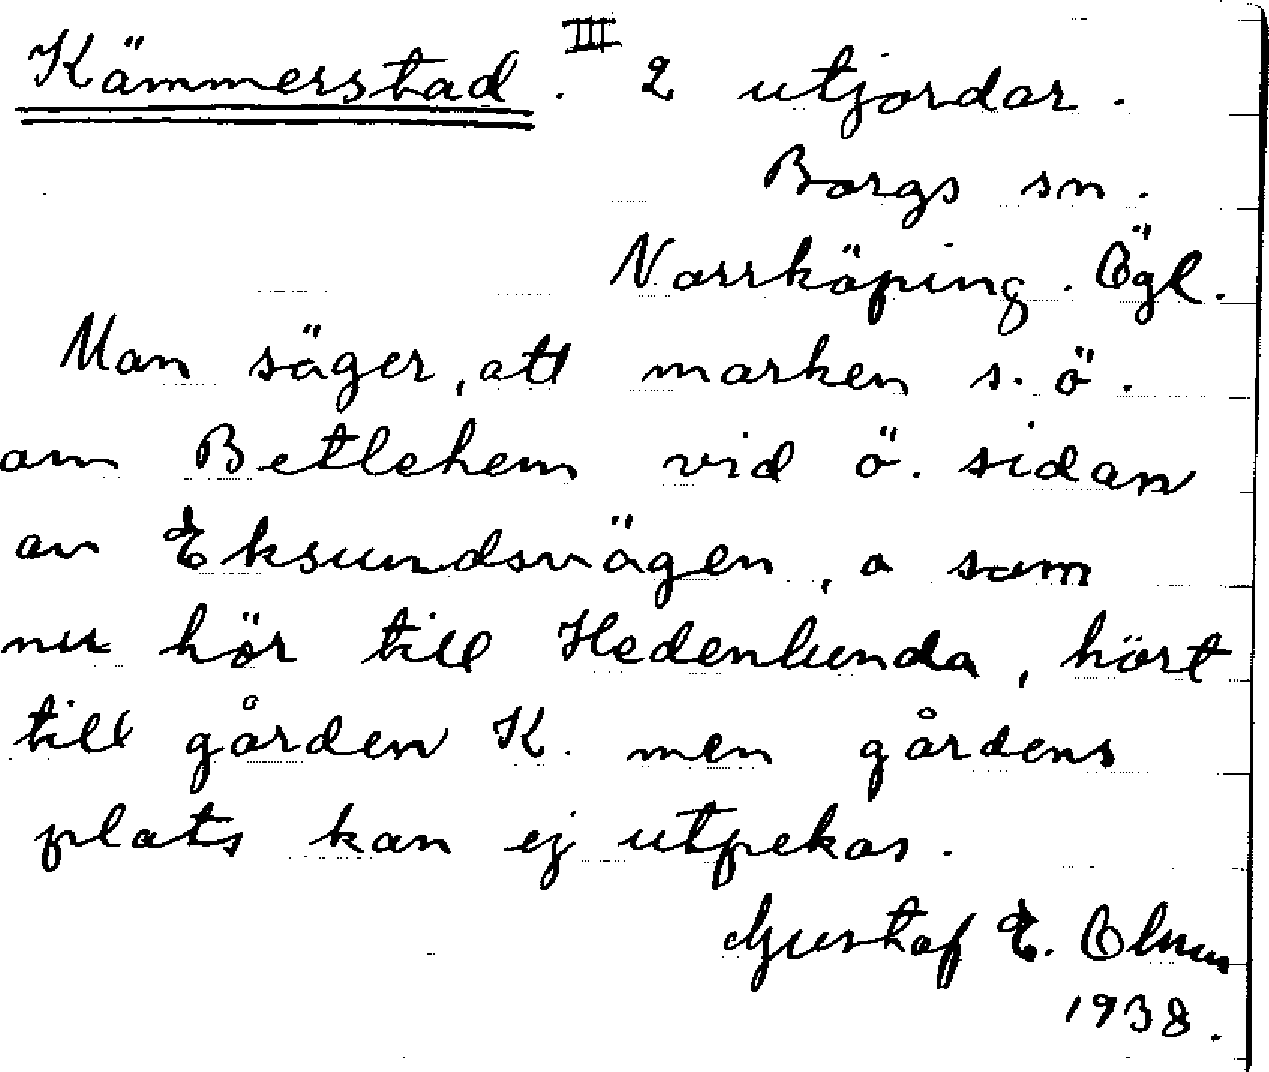 Kämmerstad. III 2 utjordar.
Borgs sn.
Norrköping. Ögl.
Man säger, att marken s. ö.
om Betlehem vid ö. sidan
av Eksundsvägen, o som
nu hör till Hedenlunda, hört
till gården K. men gårdens
plats kan ej utpekas.
Gustaf E.
1938.